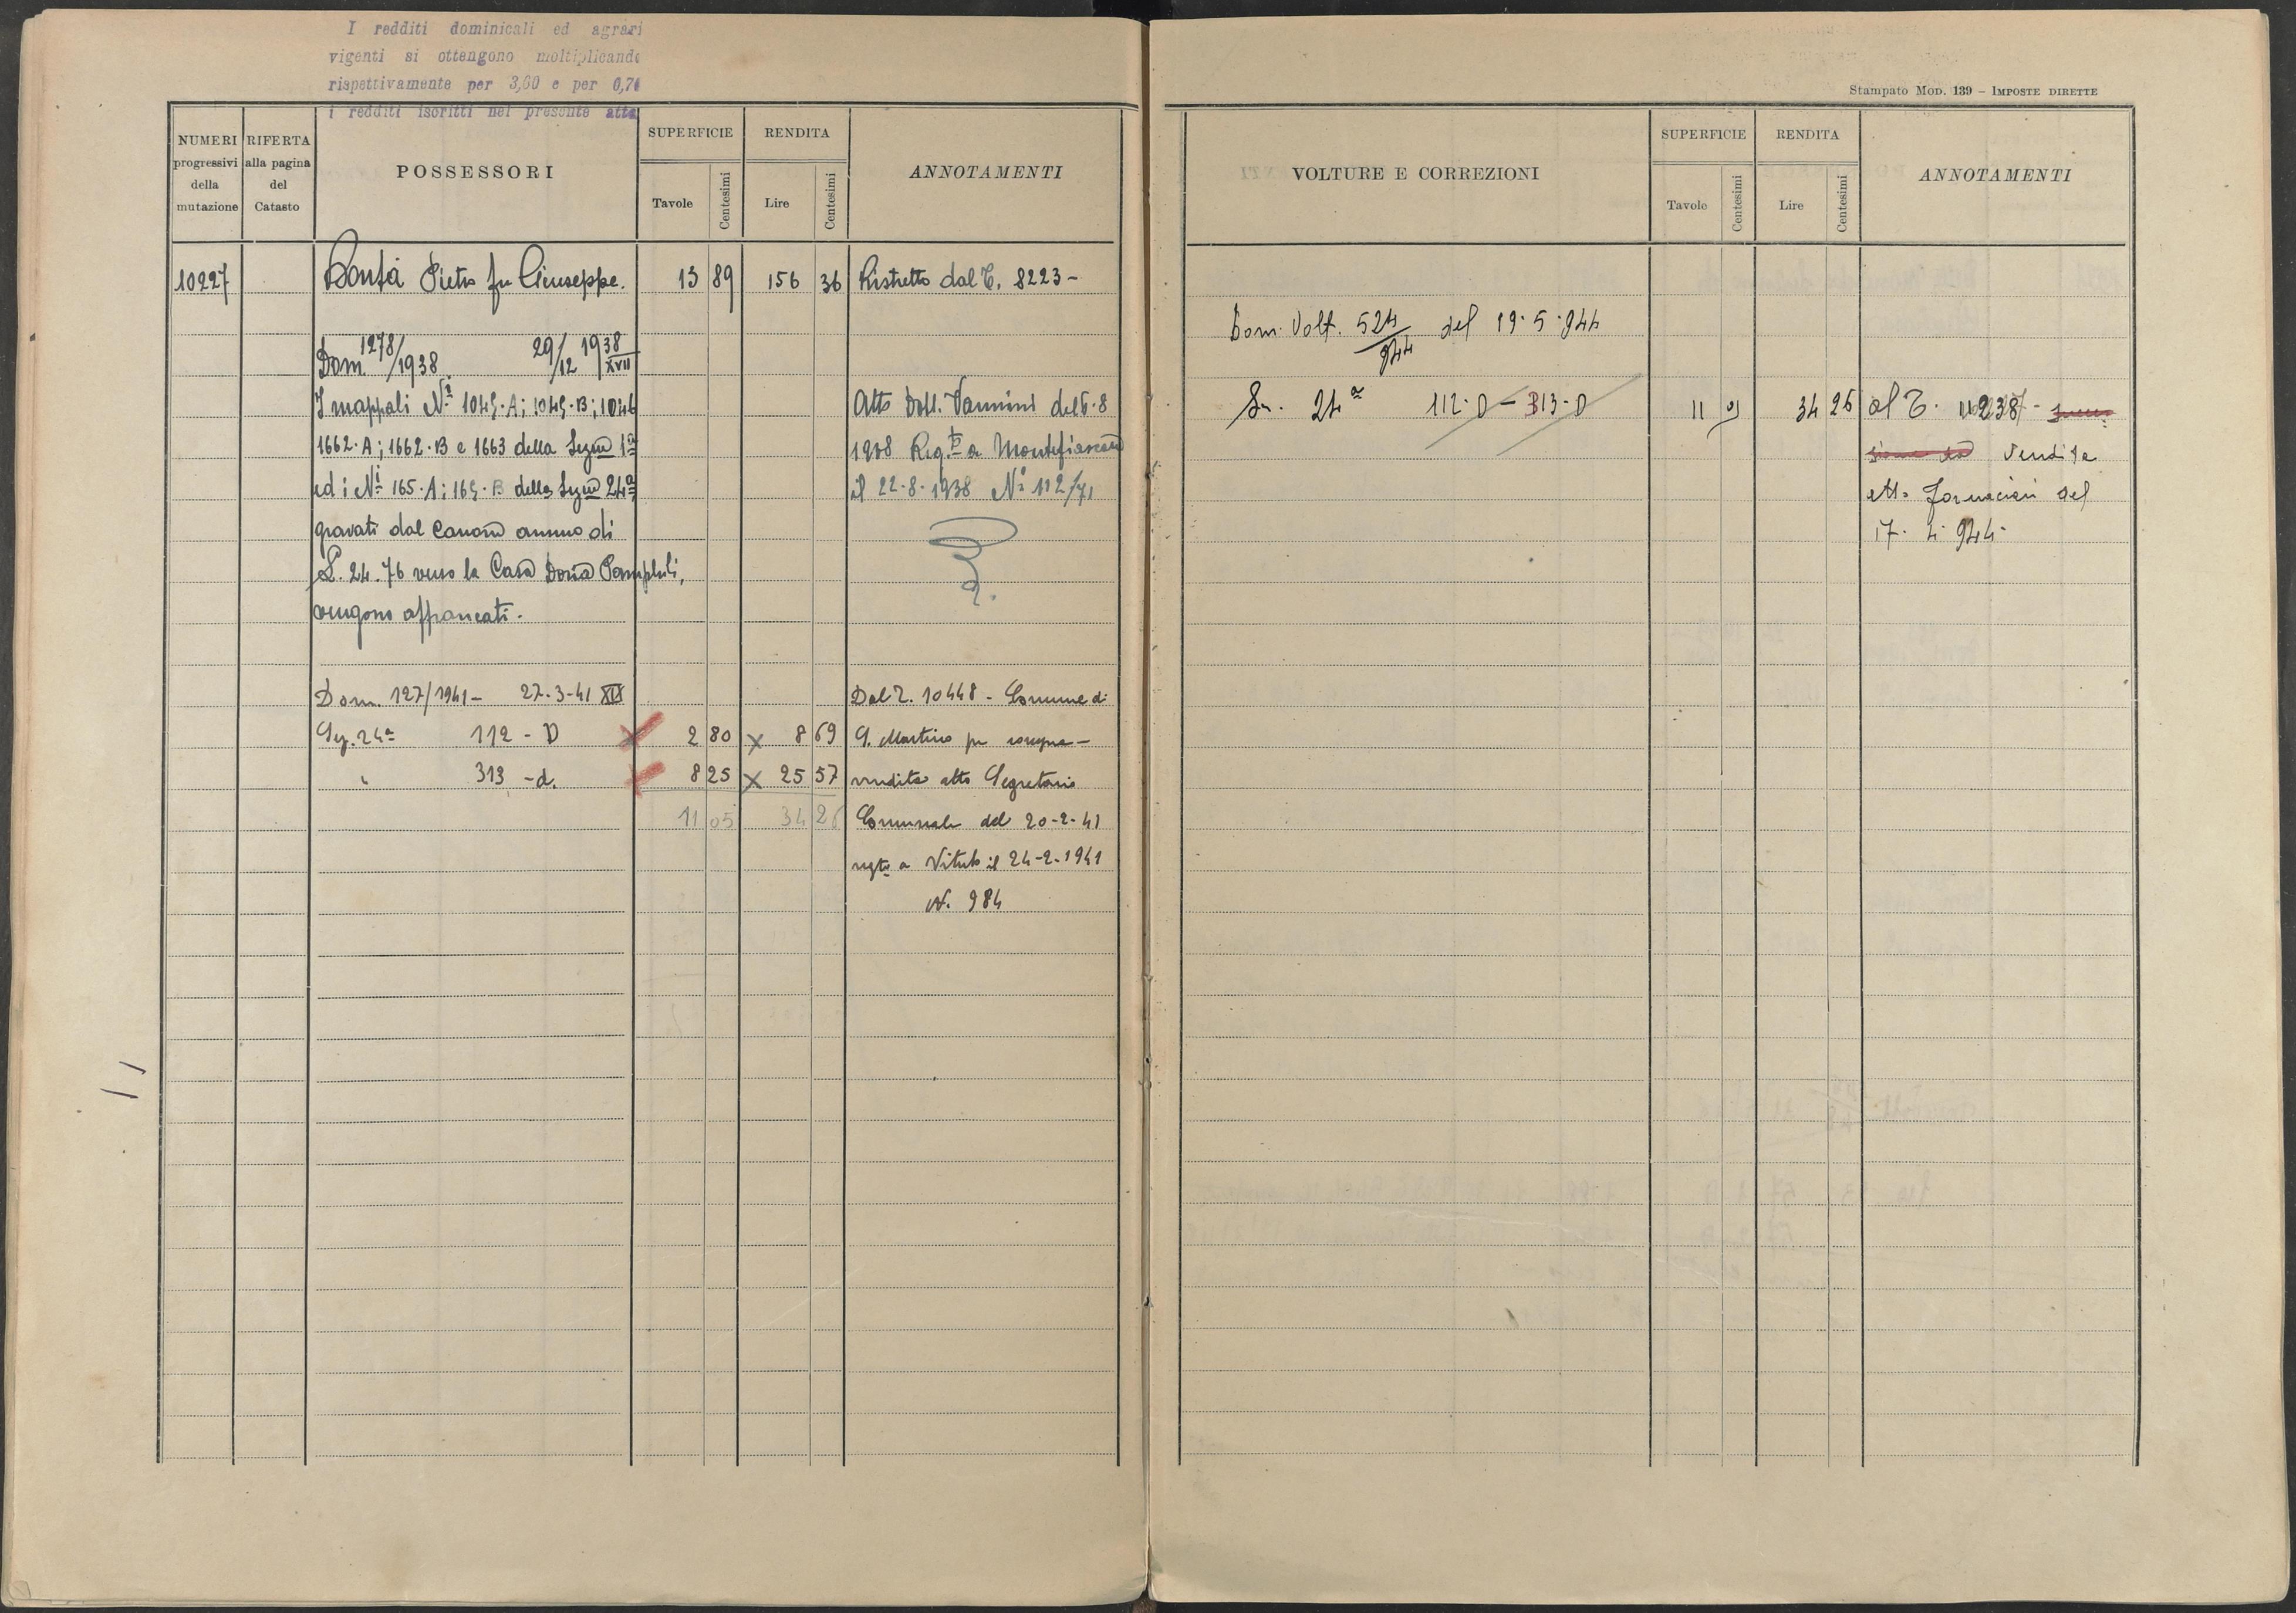 I redditi dominicali ed agrari
vigenti si ottengono moltiplicando
rispettivamente per 3,60 e per 0,70
i redditi iscritti nel presente atto
NUMERI
progressivi
della
mutazione
RIFERTA
alla pagina
del
Catasto
POSSESSORI
SUPERFICIE
Tavole
Centesimi
RENDITA
Lire
Centesimi
ANNOTAMENTI
10227
Pietro fu Giuseppe.
13 89
156 36
Ristretto dal T. 8223 -
Dom 1278/1938. 29/12 1938 XVII
I mappali Ni 1045·A; 1045·B; 1046
1662·A; 1662·B e 1663 della Sezne 1a
ed i Ni 165·A; 165·B della Sezne 24a
gravati dal Canone annuo di
L. 24.76 verso la Casa Doria Pamphili,
vengono affrancati.
Atto Dott. Vannini del 6·8
1938 Reg.to a Montefiascone
il 22·8·1938 No 112/71
Dom. 127/1941 - 27·3·41 XIX
Sez. 24a 112 - D
2 80 8 69
" 313 - d.
8 25 25 57
11 05 34 26
Dal T. 10448 - Comune di
S. Martino per
vendita atto Segretario
Comunale del 20-2-41
regto a Viterbo il 24-2-1941
N. 984
Stampato Mod. 139 – Imposte dirette
VOLTURE E CORREZIONI
SUPERFICIE
Tavole
Centesimi
RENDITA
Lire
Centesimi
ANNOTAMENTI
Dom. Volt. 524/944 del 19·5·944
Sez. 24a 112·D – 313·D
11 05
34 26
al T. 11238 -
Vendita
atto del
17· 4 944·